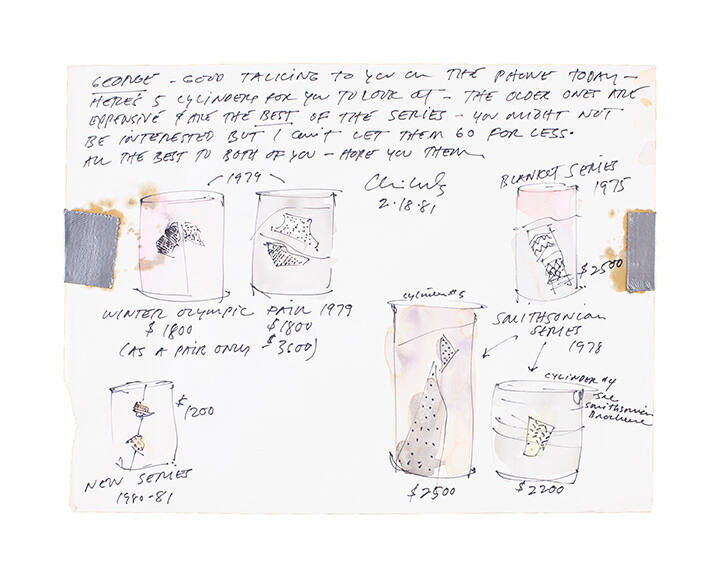 GEORGE - GOOD TALKING TO YOU ON THE PHONE TODAY -
HERE'S 5 CYLINDERS FOR YOU TO LOOK AT - THE OLDER ONES ARE
EXPENSIVE & ARE THE BEST OF THE SERIES - YOU MIGHT NOT
BE INTERESTED BUT I CAN'T LET THEM GO FOR LESS.
ALL THE BEST TO BOTH OF YOU - HOPE YOU THEM
1979
2·18·81
BLANKET SERIES
1975
$2500
WINTER OLYMPIC PAIR 1979
$1800 $1800
(AS A PAIR ONLY $3600)
cylinder #5
SMITHSONIAN
SERIES
1978
CYLINDER #4
See
Smithsonian
Brochure
$1200
NEW SERIES
1980-81
$2500
$2200